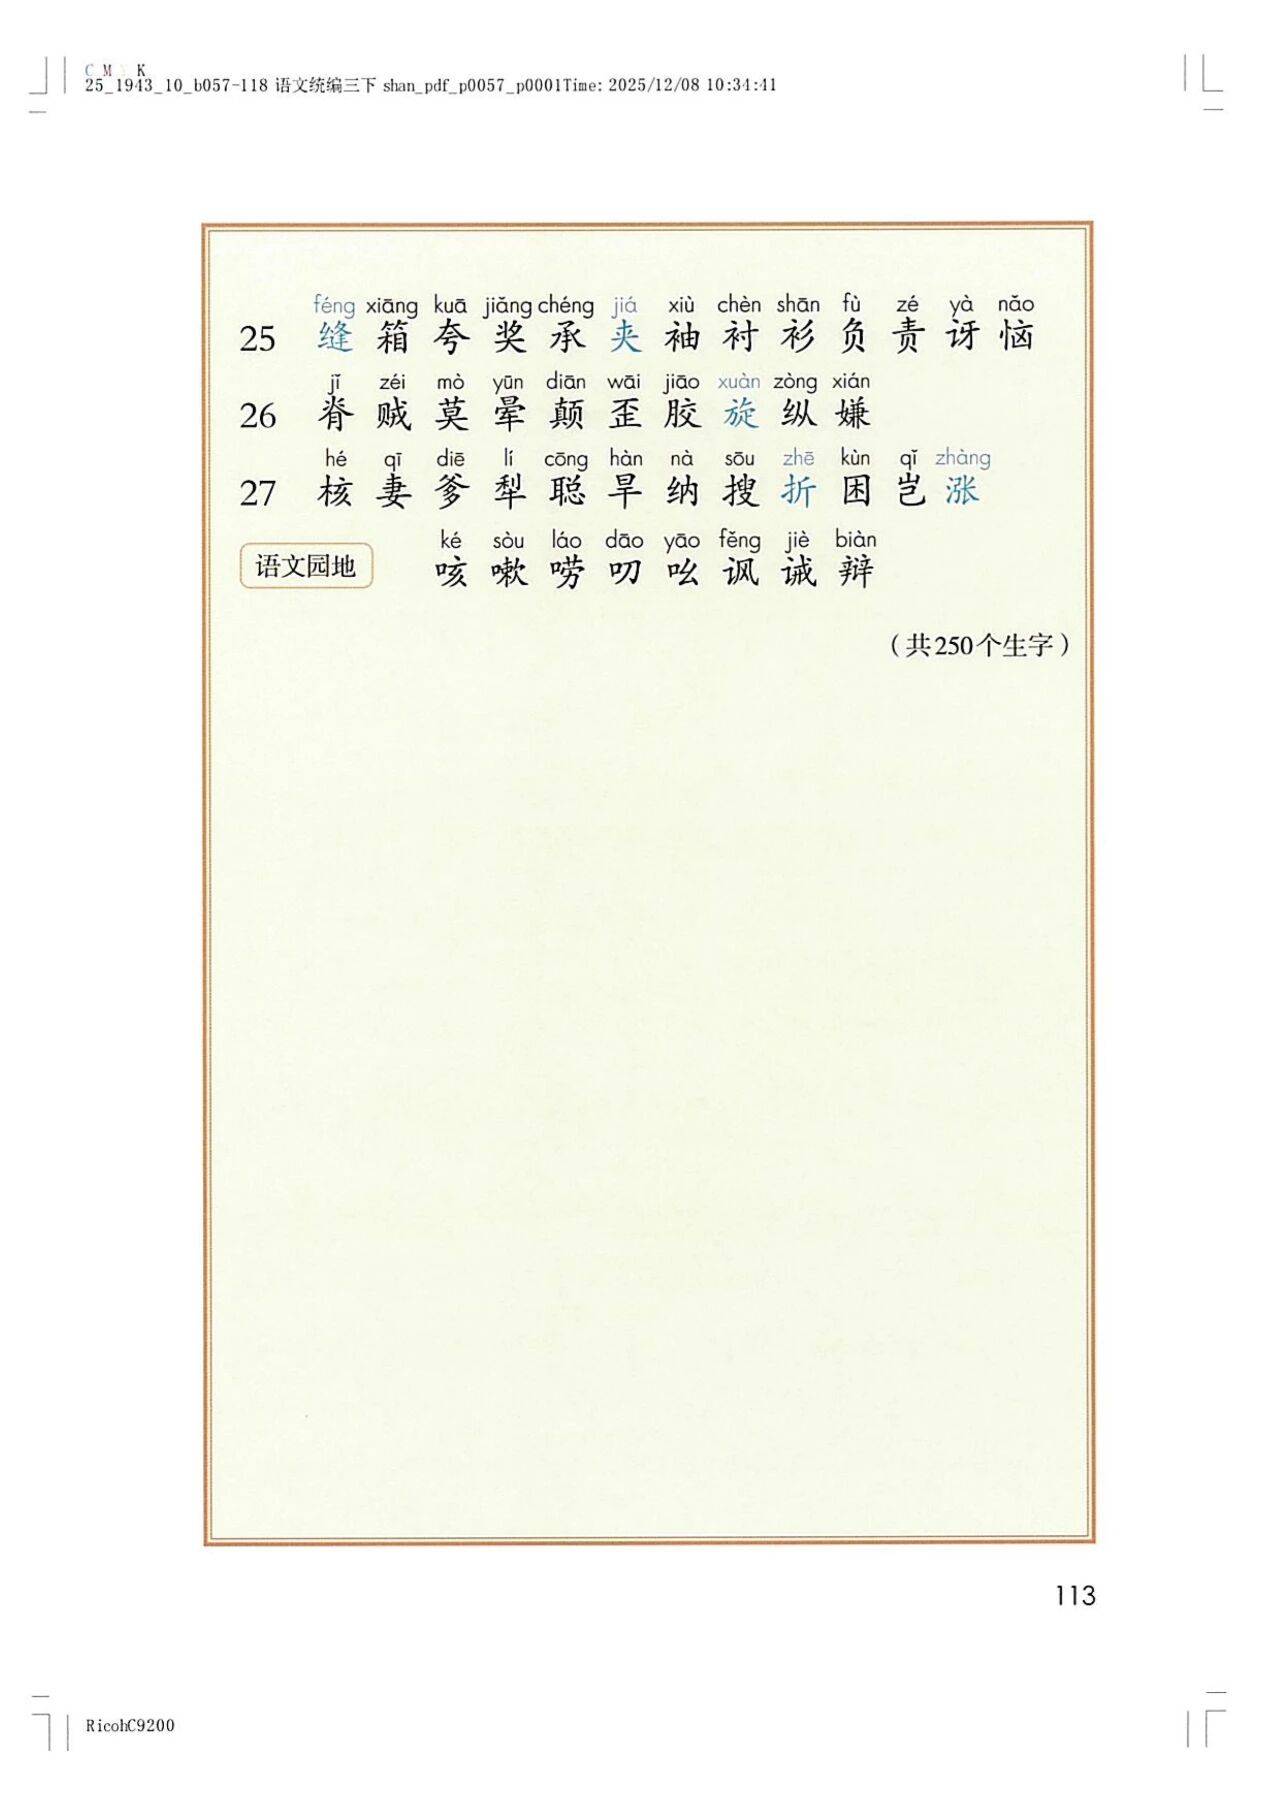 C M Y K
25_1943_10_b057-118 语文统编三下 shan_pdf_p0057_p0001Time: 2025/12/08 10:34:41
féng xiāng kuā jiǎng chéng jiá xiù chèn shān fù zé yà nǎo
25 缝 箱 夸 奖 承 夹 袖 衬 衫 负 责 讶 恼
jǐ zéi mò yūn diān wāi jiāo xuàn zòng xián
26 脊 贼 莫 晕 颠 歪 胶 旋 纵 嫌
hé qī diē lí cōng hàn nà sōu zhē kùn qǐ zhàng
27 核 妻 爹 犁 聪 旱 纳 搜 折 困 岂 涨
ké sòu láo dāo yāo fěng jiè biàn
语文园地 咳 嗽 唠 叨 吆 讽 诫 辩
（共250个生字）
113
RicohC9200